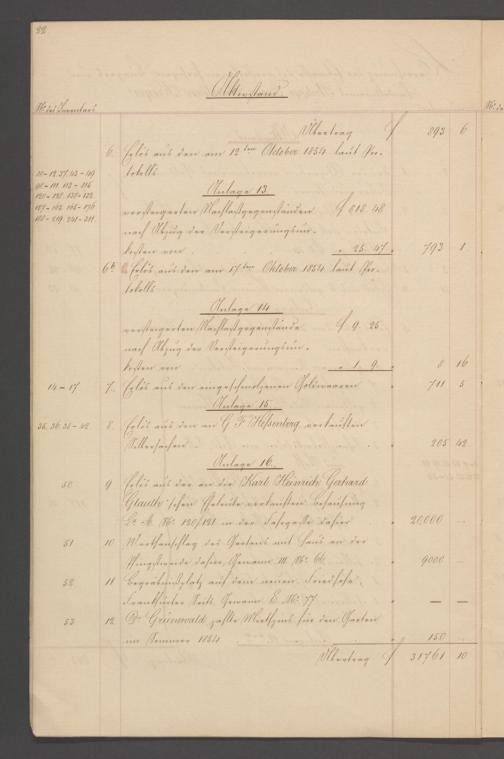 22
Aktivstand.
No des Inventars
Übertrag f 893 6
6. Erlös aus den am 12ten Oktober 1854 laut Pro-
tokolls
Anlage 13
versteigerten Nachlaßgegenständen f 818. 48
nach Abzug der Versteigerungsun-
kosten von " 25. 47 " 793 1
6b Erlös aus den am 17ten Oktober 1854 laut Pro-
tokolls
Anlage 14
versteigerten Nachlaßgegenstände f 9. 25
nach Abzug der Versteigerungsun-
kosten von " 1. 9. " 8 16
14–17. 7. Erlös aus den eingeschmolzenen Goldwaaren " 711 5
Anlage 15.
35. 36. 38–42 8. Erlös aus den an G F Hessenberg verkauften
Silbersachen " 205 42
Anlage 16.
50 9 Erlös aus der an die Karl Heinrich Gerhard
Glauth'schen Eheleute verkauften Behausung
Lit. A. No. 120/121 in der Fahrgasse dahier " 20,000 –
51 10 Werthanschlag des Gartens mit Haus an der
Pfingstweide dahier Gewann III No. 66 " 9000 –
52 11 Begräbnißplatz auf dem neuen Friedhofe,
Frankfurter Seite Gewann E No. 77. " – –
53 12 Dr Grünewald zahlte Miethzins für den Garten
im Sommer 1854 " 150 –
Übertrag f 31761 10